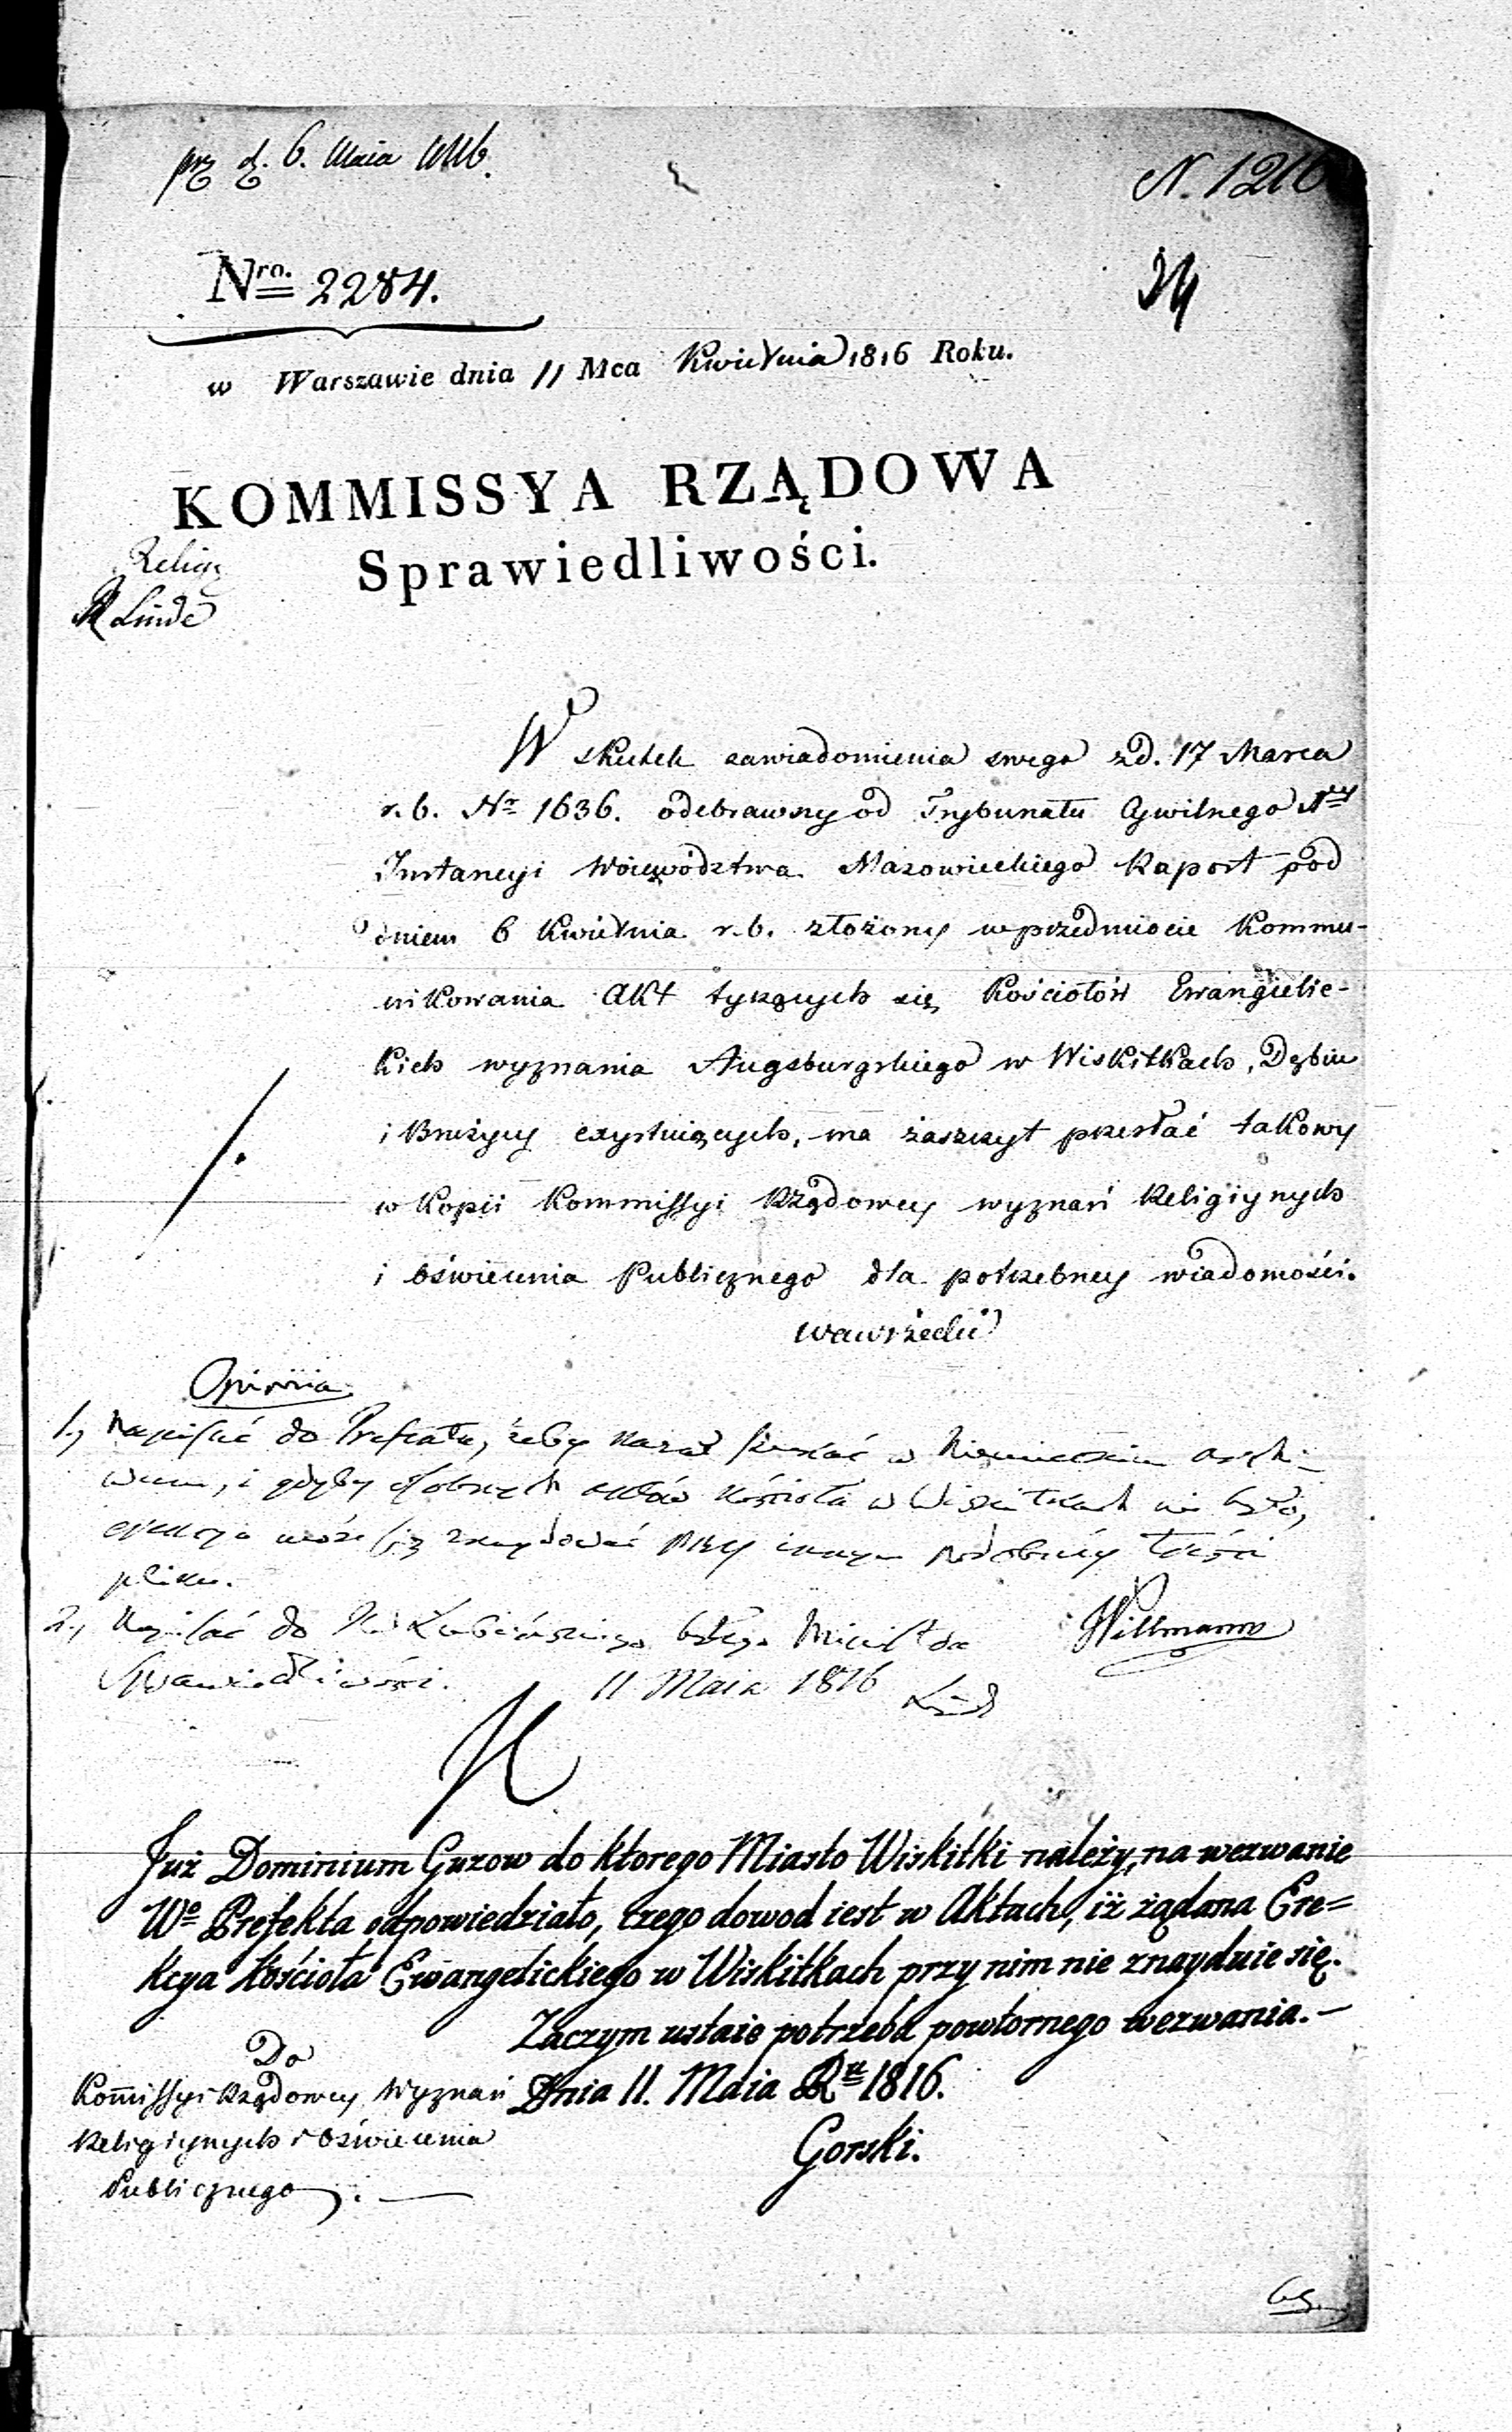 prz d. 6. Maia 1816.
N. 1216
Nro. 2284.
34
w Warszawie dnia 11 Mca Kwietnia 1816 Roku.
KOMMISSYA RZĄDOWA
Sprawiedliwości.
Religi
Linde
W skutek zawiadomienia swego z d. 17 Marca
r. b. Nr 1636. odebrawszy od Trybunału Cywilnego
Instancyi Woiewództwa Mazowieckiego Raport pod
dniem 6 Kwietnia r. b. złożony w przedmiocie kommu-
nikowania Akt tyczących się Kościołów Ewangielic-
kich wyznania Augsburgskiego w Wiskitkach, Dąbiu
i exystuiących, ma zaszczyt przesłać takowy
w kopii Kommissyi Rządowey wyznań Religiynych
i oświecenia Publicznego dla potrzebney wiadomości.
Wawrzecki
Opiniia
1., Napisać do Prefekta, żeby kazał szukać w Niemieckim archi-
wum, i gdyby osobnych aktów kościoła w Wiskitkach nie było,
erekcya może się znaydować przy innym podobney treści
pliku.
2., Napisać do Łubieńskiego byłego Ministra
Sprawiedliwości. 11 Maia 1816
Willmann
Już Dominium Guzow do ktorego Miasto Wiskitki należy, na wezwanie
Wo Prefekta odpowiedziało, czego dowod iest w Aktach, iż żądana Ere=
kcya Kościoła Ewangelickiego w Wiskitkach przy nim nie znayduie się.
Zaczym ustaie potrzeba powtornego wezwania.—
Dnia 11. Maia Ru 1816.
Gorski.
Do
Kommissyi Rządowey Wyznań
Religiynych i Oświecenia
Publicznego. —